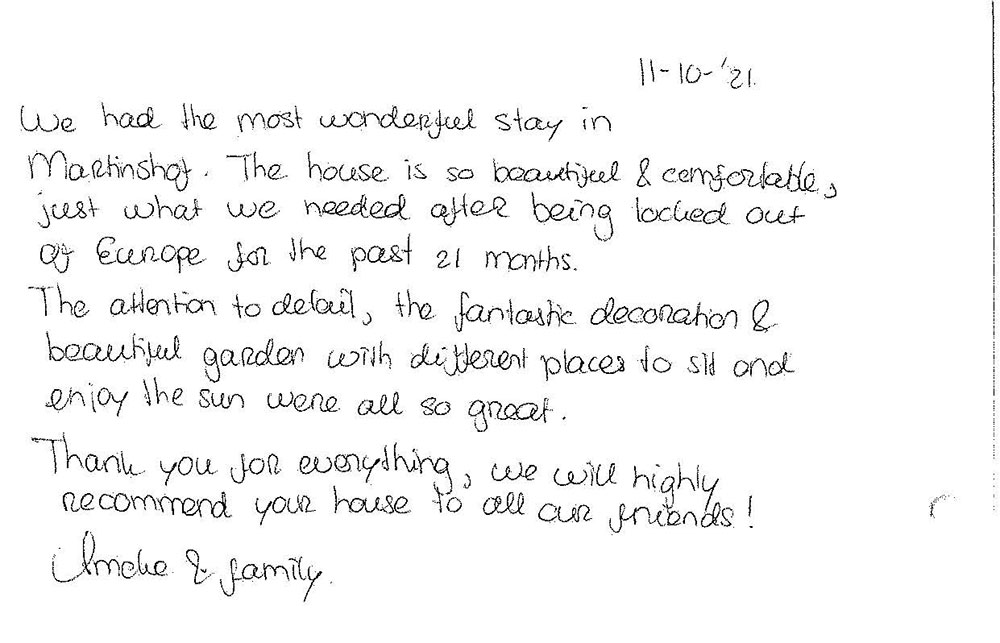 11-10-'21.
We had the most wonderful stay in
Martinshof. The house is so beautiful & comfortable,
just what we needed after being locked out
of Europe for the past 21 months.
The attention to detail, the fantastic decoration &
beautiful garden with different places to sit and
enjoy the sun were all so great.
Thank you for everything, we will highly
recommend your house to all our friends!
& family.